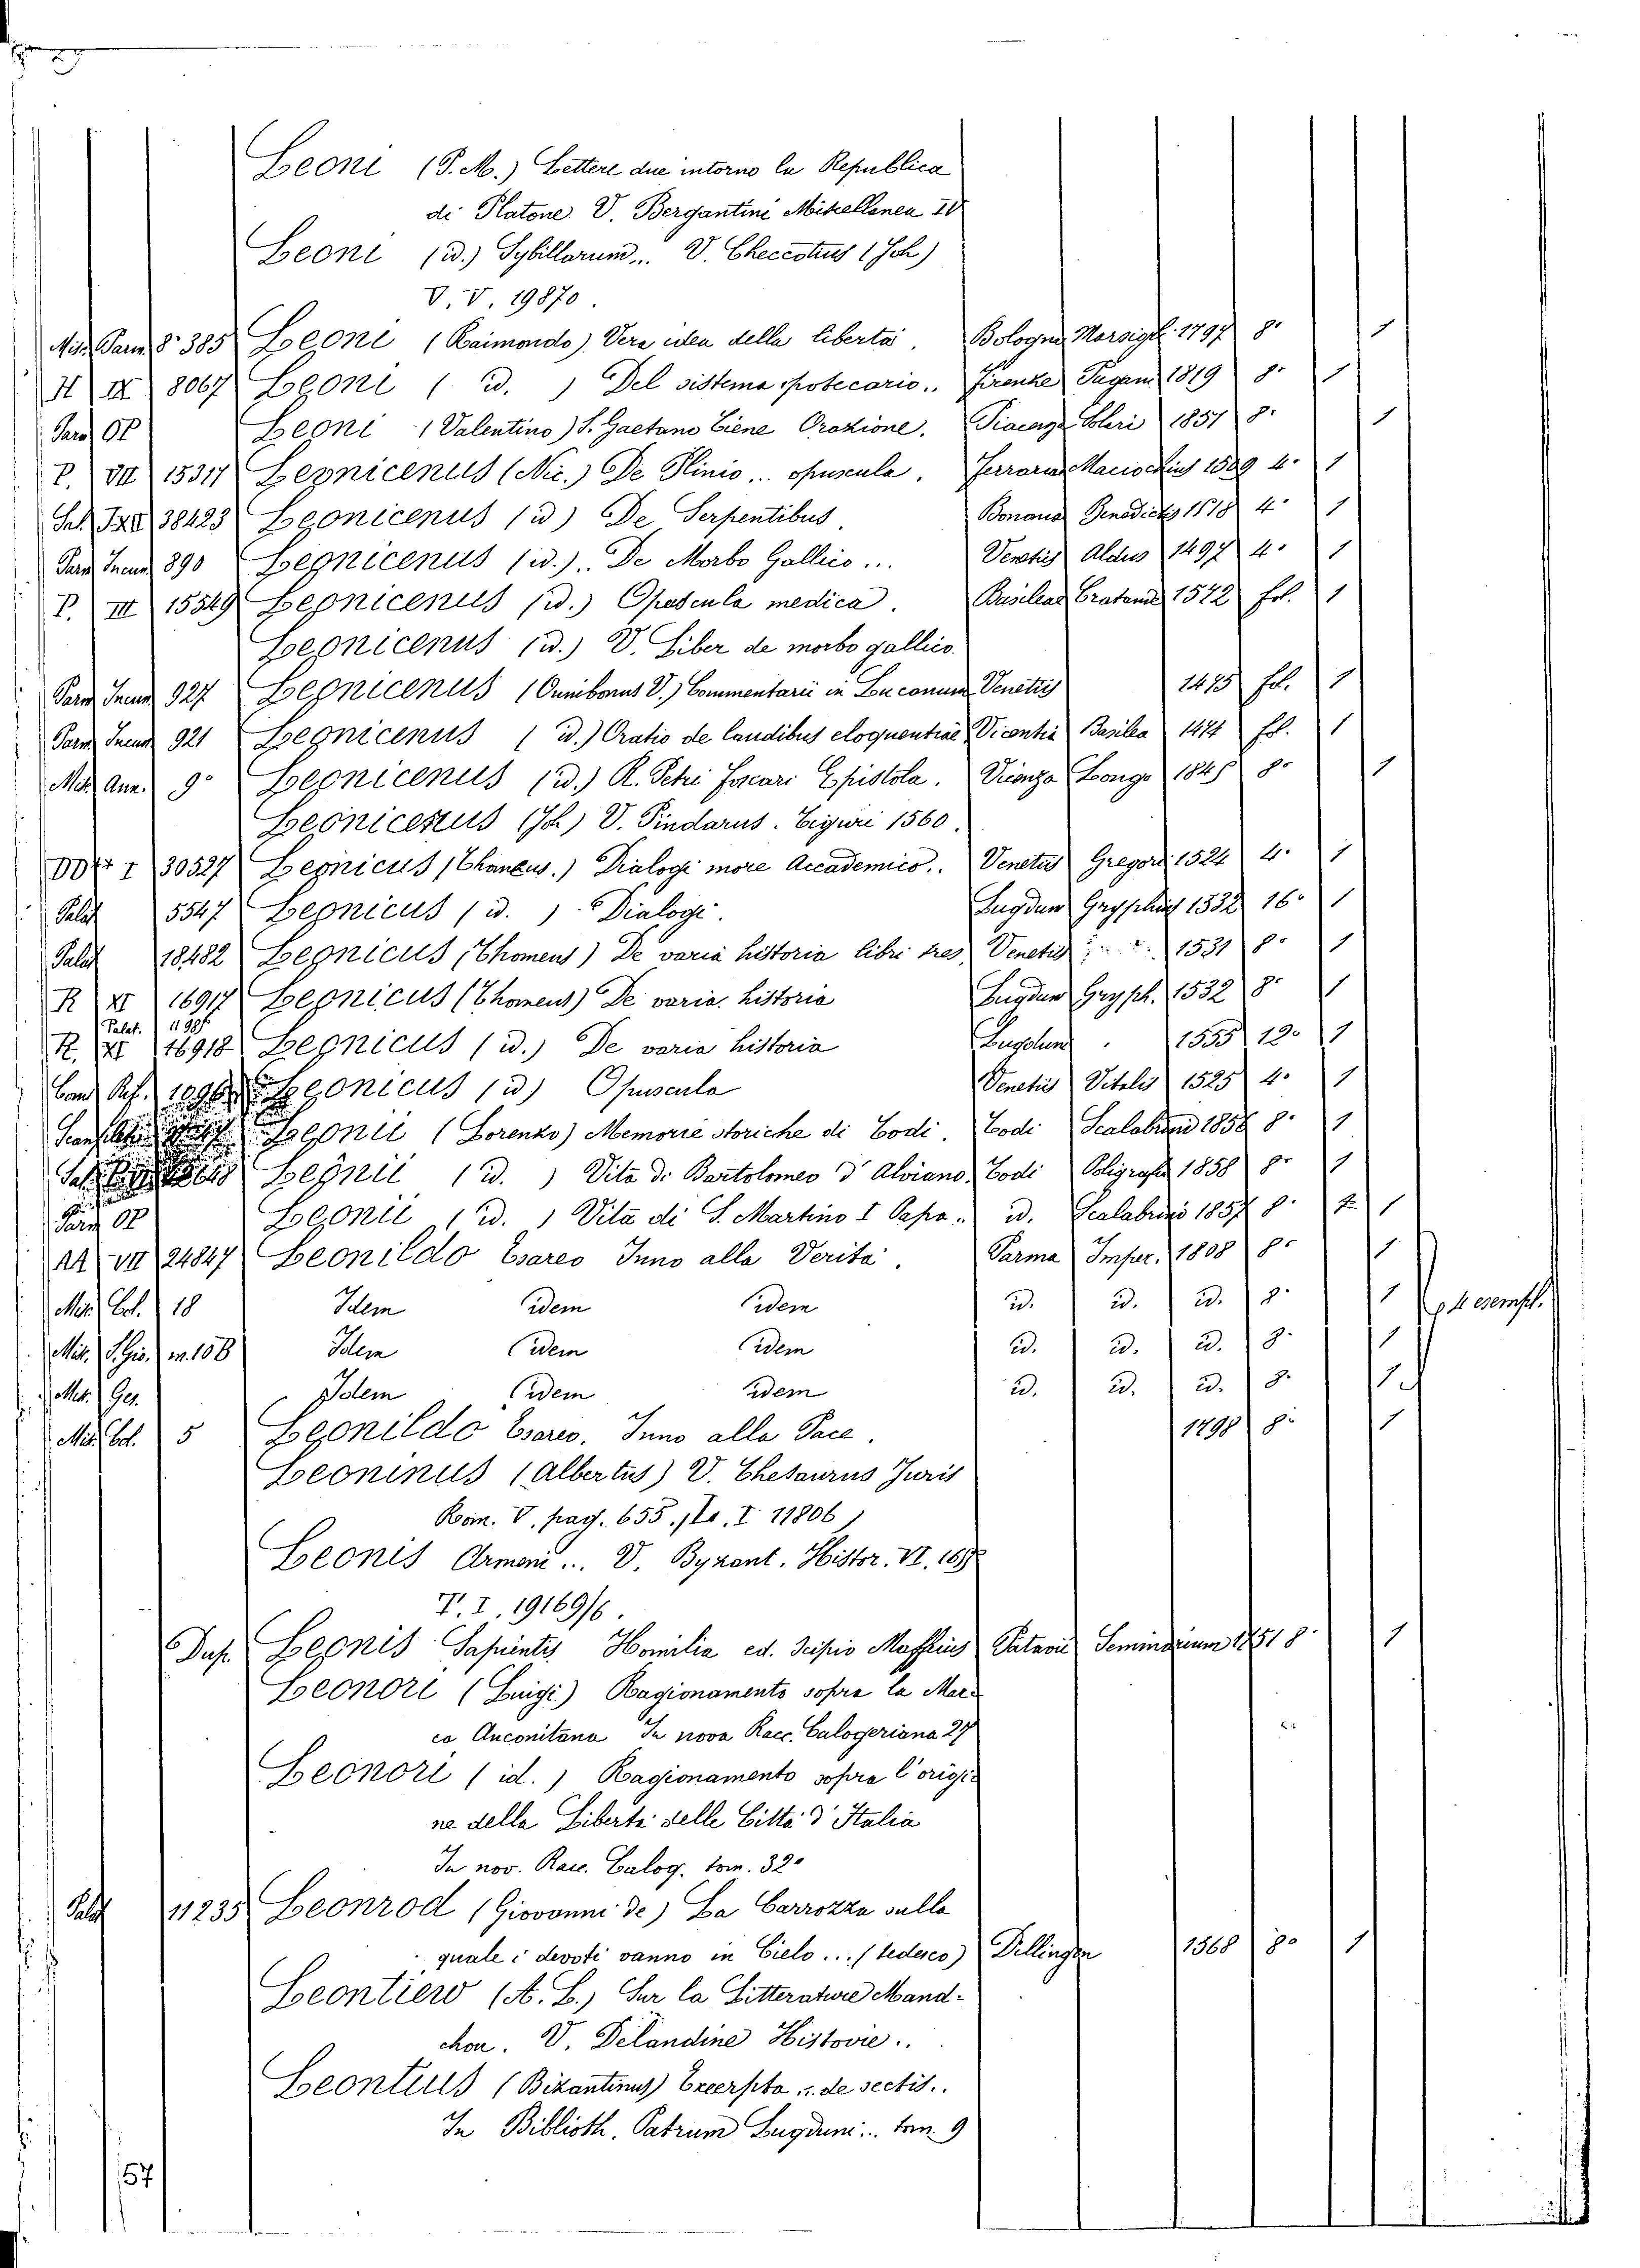 Leoni (P. M.) Lettere due intorno la Republica
di Platone. V. Bergantini Miscellanea IV
Leoni (id.) Sybillarum... V. Checcotius (Joh)
V. V. 19870.
Mis. Parm. 8° 385 Leoni (Raimondo) Vera idea della libertà. Bologna Marsigli 1797 8° 1
H IX 8067 Leoni (id.) Del sistema ipotecario.. Firenze Pagani 1819 8° 1
Parm OP Leoni (Valentino) S. Gaetano Tiene Orazione. Piacenza Soleri 1857 8° 1
P. VII 15317 Leonicenus (Nic.) De Plinio... opuscula. Ferrariae Maciochius 1509 4° 1
Sal. 38423 Leonicenus (id) De Serpentibus. Bononiae Benedictis 1518 4° 1
Parm Incun 890 Leonicenus (id.).. De Morbo Gallico... Venetiis Aldus 1497 4° 1
P. III 15549 Leonicenus (id.) Opuscula medica. Basileae Cratand 1542 fol. 1
Leonicenus (id.) V. Liber de morbo gallico.
Parm Incun 927 Leonicenus (Omnibonus V.) Commentarii in Luconum Venetiis 1475 fol. 1
Parm Incun 921 Leonicenus (id.) Oratio de laudibus eloquentiae Vicentia Basilea 1474 fol. 1
Mis. Ann. 9° Leonicenus (id.) R. Petri Foscari Epistola. Vicenza Longo 1845 8° 1
Leonicenus (Joh) V. Pindarus. Tiguri 1560.
I 30527 Leonicus (Thomeus.) Dialogi more Accademico.. Venetiis Gregori 1524 4° 1
Palat 5547 Leonicus (id.) Dialogi. Lugdun Gryphius 1532 16° 1
Palat 18482 Leonicus (Thomeus) De varia historia libri tres Venetiis 1531 8° 1
R XI 16917 Leonicus (Thomeus) De varia historia Lugdun Gryph. 1532 8° 1
Palat. 1198
R. XI 16918 Leonicus (id.) De varia historia Lugduni 1555 12° 1
1096 Leonicus (id) Opuscula Venetiis Vitalis 1525 4° 1
Leonii (Lorenzo) Memorie storiche di Todi. Todi Scalabrini 1856 8° 1
Leonii (id.) Vita di Bartolomeo d'Alviano. Todi Poligrafia 1858 8° 1
Parm OP Leonii (id.) Vita di S. Martino I Papa.. id. Scalabrini 1857 8° 1
AA VII 24847 Leonildo Esareo Inno alla Verità. Parma Imper. 1808 8° 1
Mis. Col. 18 Idem idem idem id. id. id. 8° 1 4 esempl.
Mis. S. Gio. m. 108 Idem idem idem id. id. id. 8° 1
Mis. Ges. Idem idem idem id. id. id. 8° 1
Mis. Col. 5 Leonildo Esareo. Inno alla Pace. 1798 8° 1
Leoninus (Albertus) V. Thesaurus Juris
Rom. V. pag. 655. I 11806)
Leonis Armeni... V. Byzant. Histor. VI. 167
T. I. 19169/6.
Dup. Leonis Sapientis Homilia ed. Scipio Maffeius Patavii Seminarium 1751 8° 1
Leonori (Luigi) Ragionamento sopra la Mar-
ca Anconitana In nova Racc. Calogeriana 27
Leonori (id.) Ragionamento sopra l'origi-
ne della Libertà delle Città d'Italia
In nov. Racc. Calog. tom. 32°
Palat 11235 Leonrod (Giovanni de) La Carrozza sulla
quale i devoti vanno in Cielo... (tedesco) Dillingen 1568 8° 1
Leontiew (A. L.) Sur la Litterature Mand-
chou. V. Delandine Histoire..
Leontius (Bizantinus) Excerpta... de sectis..
In Biblioth. Patrum Lugduni... tom. 9
57